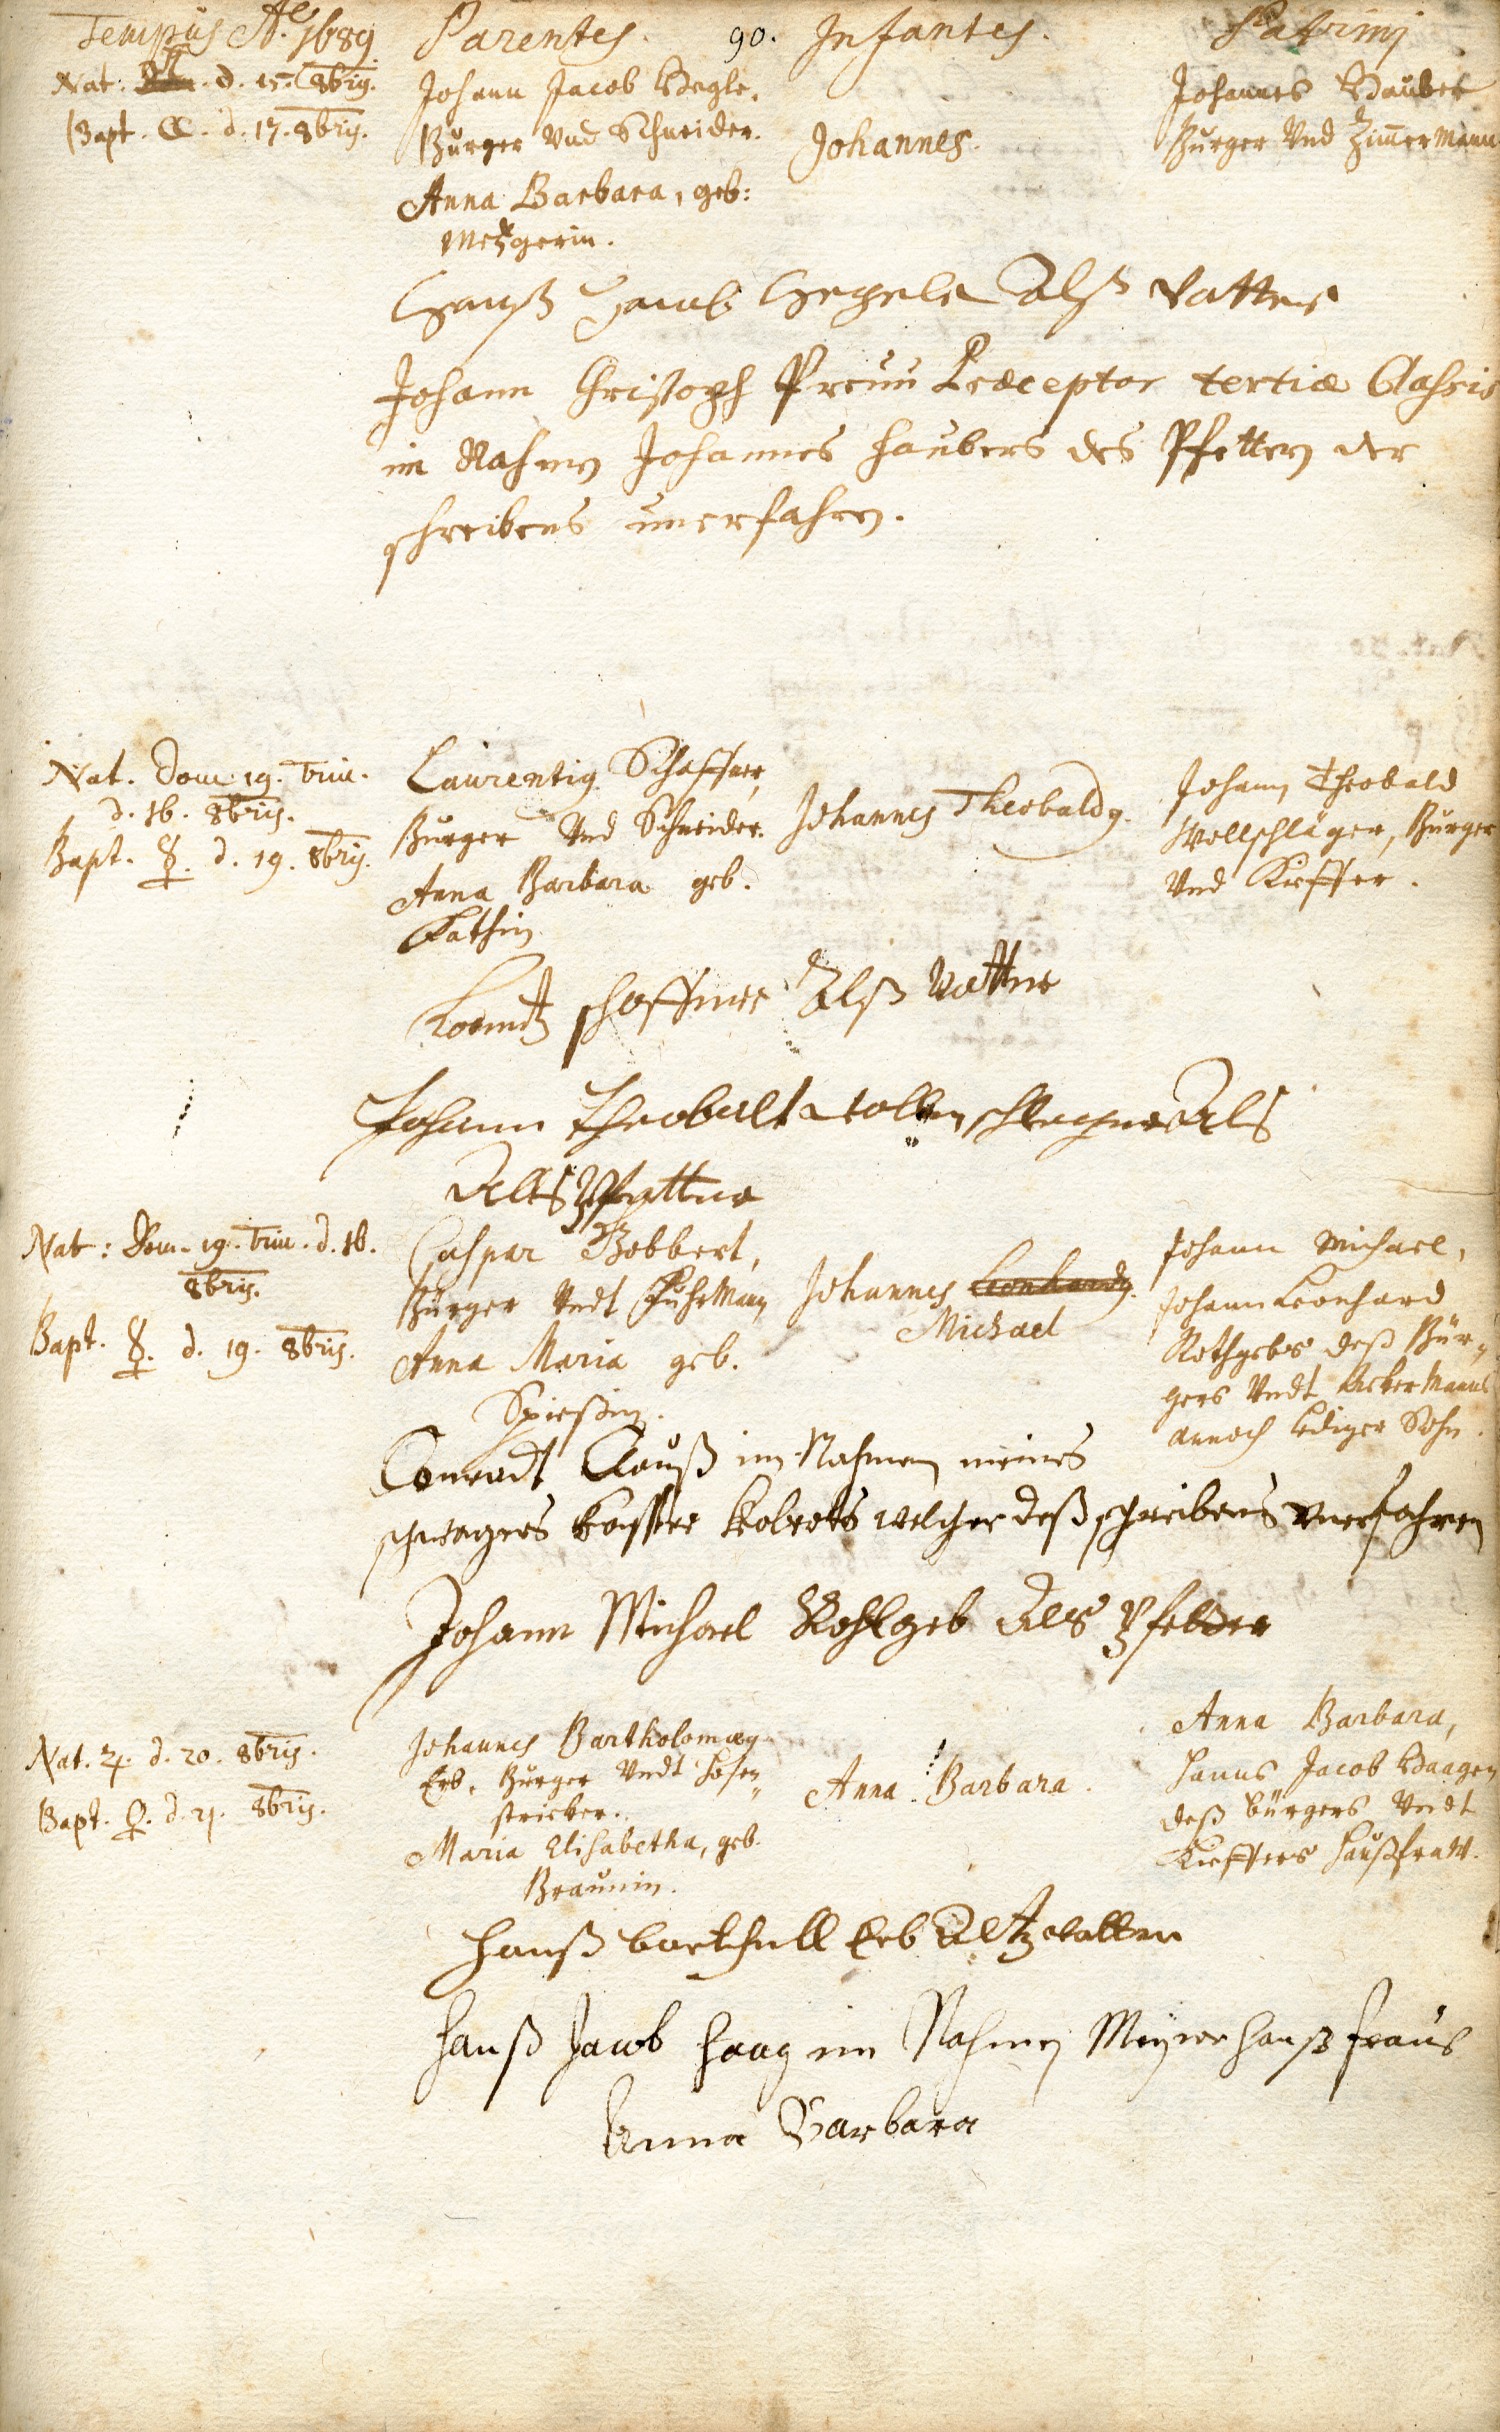 Tempus Aō. 1689
Parentes.
90.
Infantes.
Patrini
Nat. ♄. d. 15. 8bris.
Bapt. ☾. d. 17. 8bris.
Johann Jacob Hegle,
Burger Vnd Schneider.
Anna Barbara, geb:
Metzgerin.
Johannes.
Johannes Hauber
Burger Vnd Zim̄ermann
Hanß Jacob Hegele Alß Vatter
Johann Christoph Preuu Præceptor tertiæ Classis
im Nahmen Johannes Haubers des Pfetters der
schreibens unerfahren.
Nat. Dom. 19. Trin.
d. 16. 8bris.
Bapt. ☿. d. 19. 8bris.
Laurentius Schaffner,
Burger Vnd Schneider.
Anna Barbara geb.
Rathin
Johannes Theobaldus.
Johann Theobald
Wollschläger, Burger
Vnd Kieffer.
Lorentz schaffner Alß Vatter
Johann Theobalt wollenschleger Als
Alls Pfetter
Nat: Dom. 19. Trin. d. 16.
8bris.
Bapt. ☿. d. 19. 8bris.
Caspar Bobbert,
Burger Vndt Fuhrmann
Anna Maria geb.
Spießin.
Johannes Leonhardus.
Michael
Johann Michael,
Johann Leonhard
Rothgebs deß Bür-
gers Vndt Ackermanns
annoch lediger Sohn.
Conradt Clauß im Nahmen meines
schwagers welcher deß schreibens vnerfahren
Johann Michael Rohtgeb Als Pfetter
Nat. ♃. d. 20. 8bris.
Bapt. ♀. d. 21. 8bris.
Johannes Bartholomæus
Erb, Burger Vndt Hosen
stricker.
Maria Elisabetha, geb.
Braunin.
Anna Barbara.
Anna Barbara,
Hanns Jacob Haagen
deß bürgers Vndt
Kieffers Haußfraw.
Hanß barthell Erb Altz vatter
Hanß Jacob Haag im Nahmen Meiner Hanß frauw
Anna Barbara